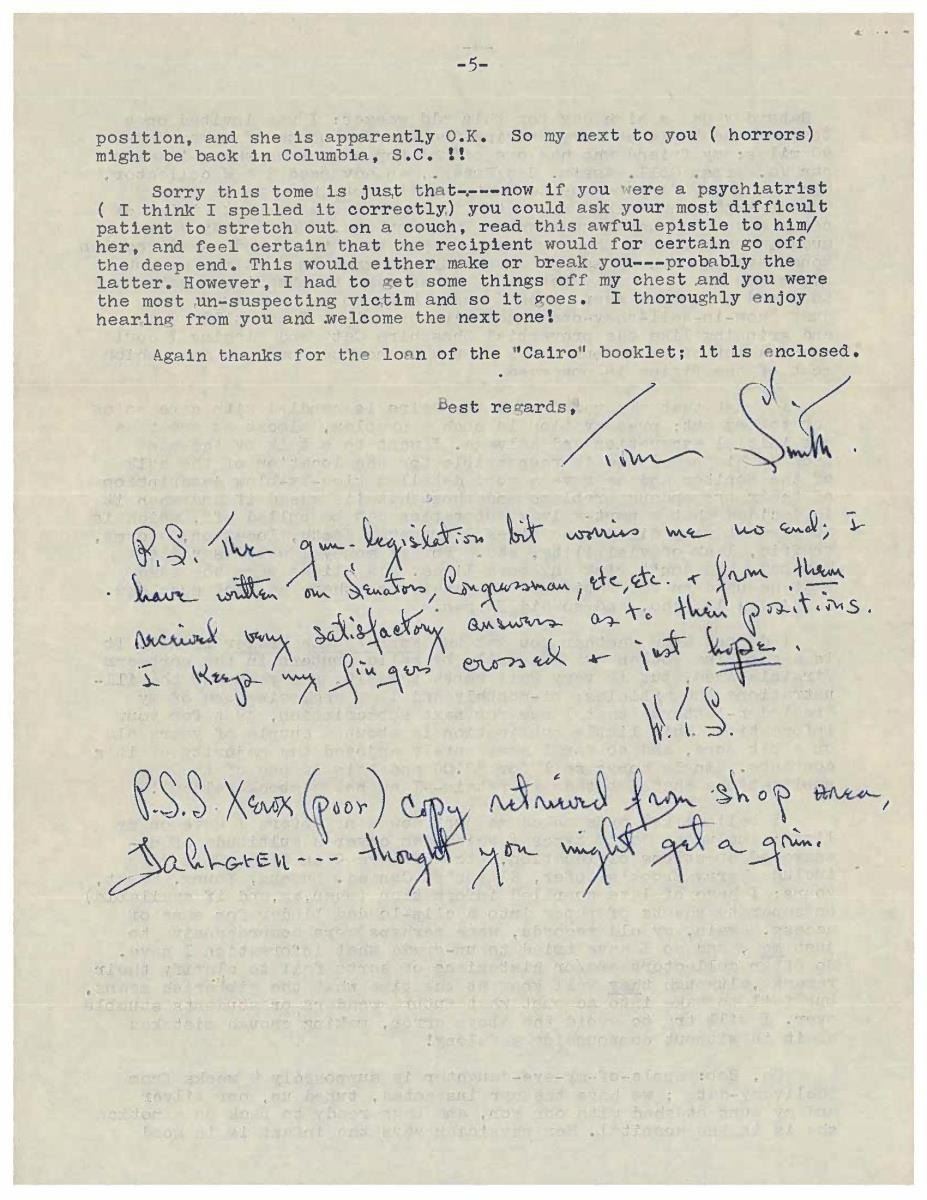 -5-
position, and she is apparently O.K. So my next to you ( horrors)
might be back in Columbia, S.C. !!
Sorry this tome is just that-.---now if you were a psychiatrist
( I think I spelled it correctly) you could ask your most difficult
patient to stretch out on a couch, read this awful epistle to him/
her, and feel certain that the recipient would for certain go off
the deep end. This would either make or break you---probably the
latter. However, I had to get some things off my chest and you were
the most un-suspecting victim and so it goes. I thoroughly enjoy
hearing from you and welcome the next one!
Again thanks for the loan of the "Cairo" booklet; it is enclosed.
Best regards,
Tom Smith.
P.S. The gun-legislation bit worries me no end; I
have written our Senators, Congressman, etc, etc. + from them
received very satisfactory answers as to their positions.
I Keep my fingers crossed + just hope.
W.T.S.
P.S.S. Xerox (poor) copy retrieved from shop area,
Dahlgren --- thought you might get a grin.